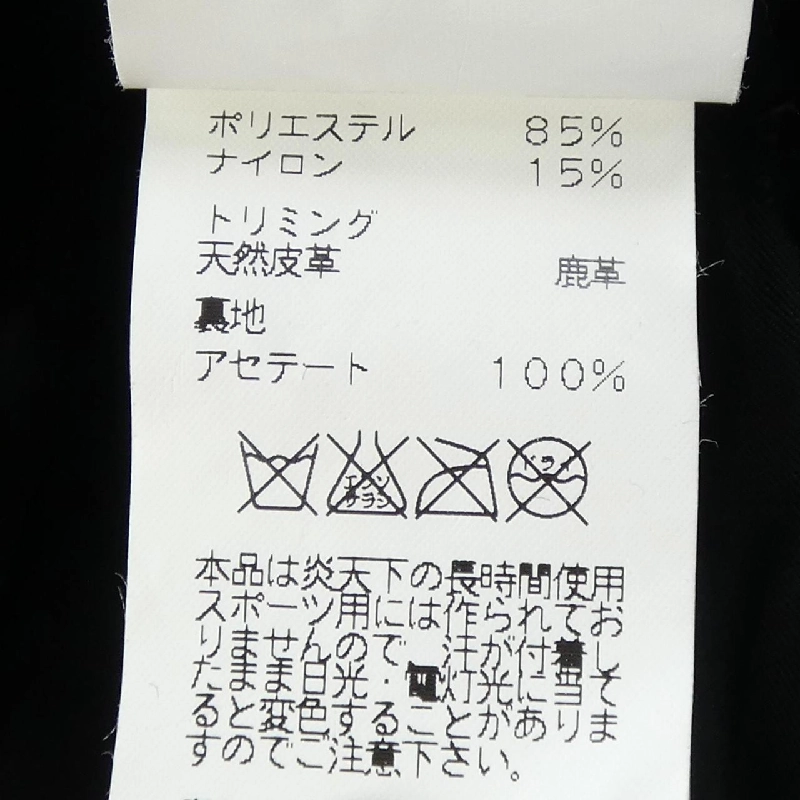 ポリエステル 85%
ナイロン 15%
トリミング
天然皮革 鹿革
裏地
アセテート 100%
エンソ
サラシ
ドライ
本品は炎天下の長時間使用
スポーツ用には作られてお
りませんので汗が付着して
たまま日光・電灯光に当ま
ると変色することがありま
すのでご注意下さい。